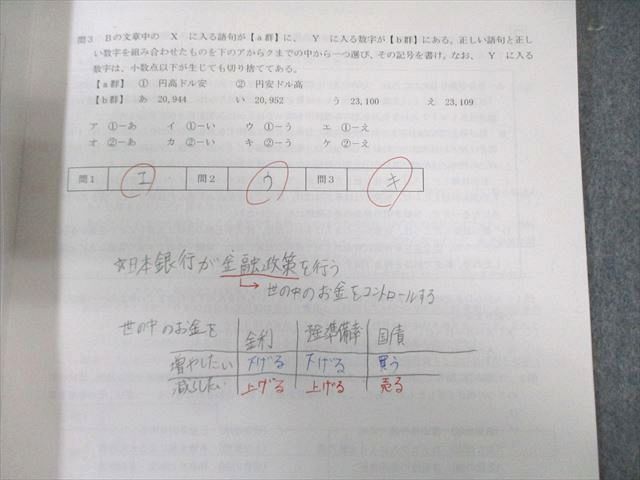 問3 Bの文章中の X に入る語句が【a群】に、 Y に入る数字が【b群】にある。正しい語句と正し
い数字を組み合わせたものを下のアからクまでの中から一つ選び、その記号を書け。なお、 Y に入る
数字は、小数点以下が生じても切り捨ててある。
【a群】 ① 円高ドル安 ② 円安ドル高
【b群】 あ 20,944 い 20,952 う 23,100 え 23,109
ア ①－あ イ ①－い ウ ①－う エ ①－え
オ ②－あ カ ②－い キ ②－う ケ ②－え
問1 エ 問2 ウ 問3 キ
☆日本銀行が金融政策を行う
→世の中のお金をコントロールする
世の中のお金を 金利 準備率 国債
増やしたい 下げる 下げる 買う
減らしたい 上げる 上げる 売る